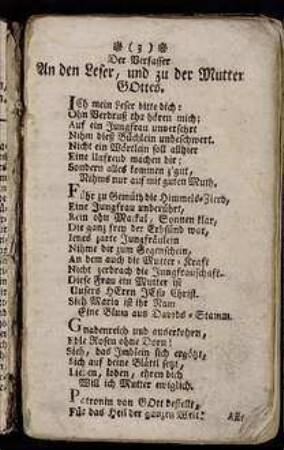 ❋ ( 3 ) ❋
Der Verfasser
An den Leser, und zu der Mutter
GOttes.
ICh mein Leser bitte dich:
Ohn Verdruß thu hören mich;
Auf ein Jungfrau unversehrt
Nihm dieß Büchlein unbeschwert.
Nicht ein Wörtlein soll allhier
Eine Unfreud machen dir:
Sondern alles kommen z'gut,
Nihms nur auf mit guten Muth.
Führ zu Gemüth die Himmels-Zierd,
Eine Jungfrau unberührt,
Rein ohn Mackal, Sonnen klar,
Die ganz frey der Erbsünd war,
Jenes zarte Jungfräulein
Nihme dir zum Gegenschein,
An dem auch die Mutter-Kraft
Nicht zerbrach die Jungfrauschaft.
Diese Frau ein Mutter ist
Unsers HErrn JEsu Christ.
Sieh Maria ist ihr Nam
Eine Blum aus Davids-Stamm.
Gnadenreich und auserkohrn,
Edle Rosen ohne Dorn!
Sieh, das sich ergötzt,
Sich auf deine Blättl setzt,
loben, ehren dich
Will ich Mutter ewiglich.
Patronin von GOtt bestellt,
Für das Heil der ganzen Welt!